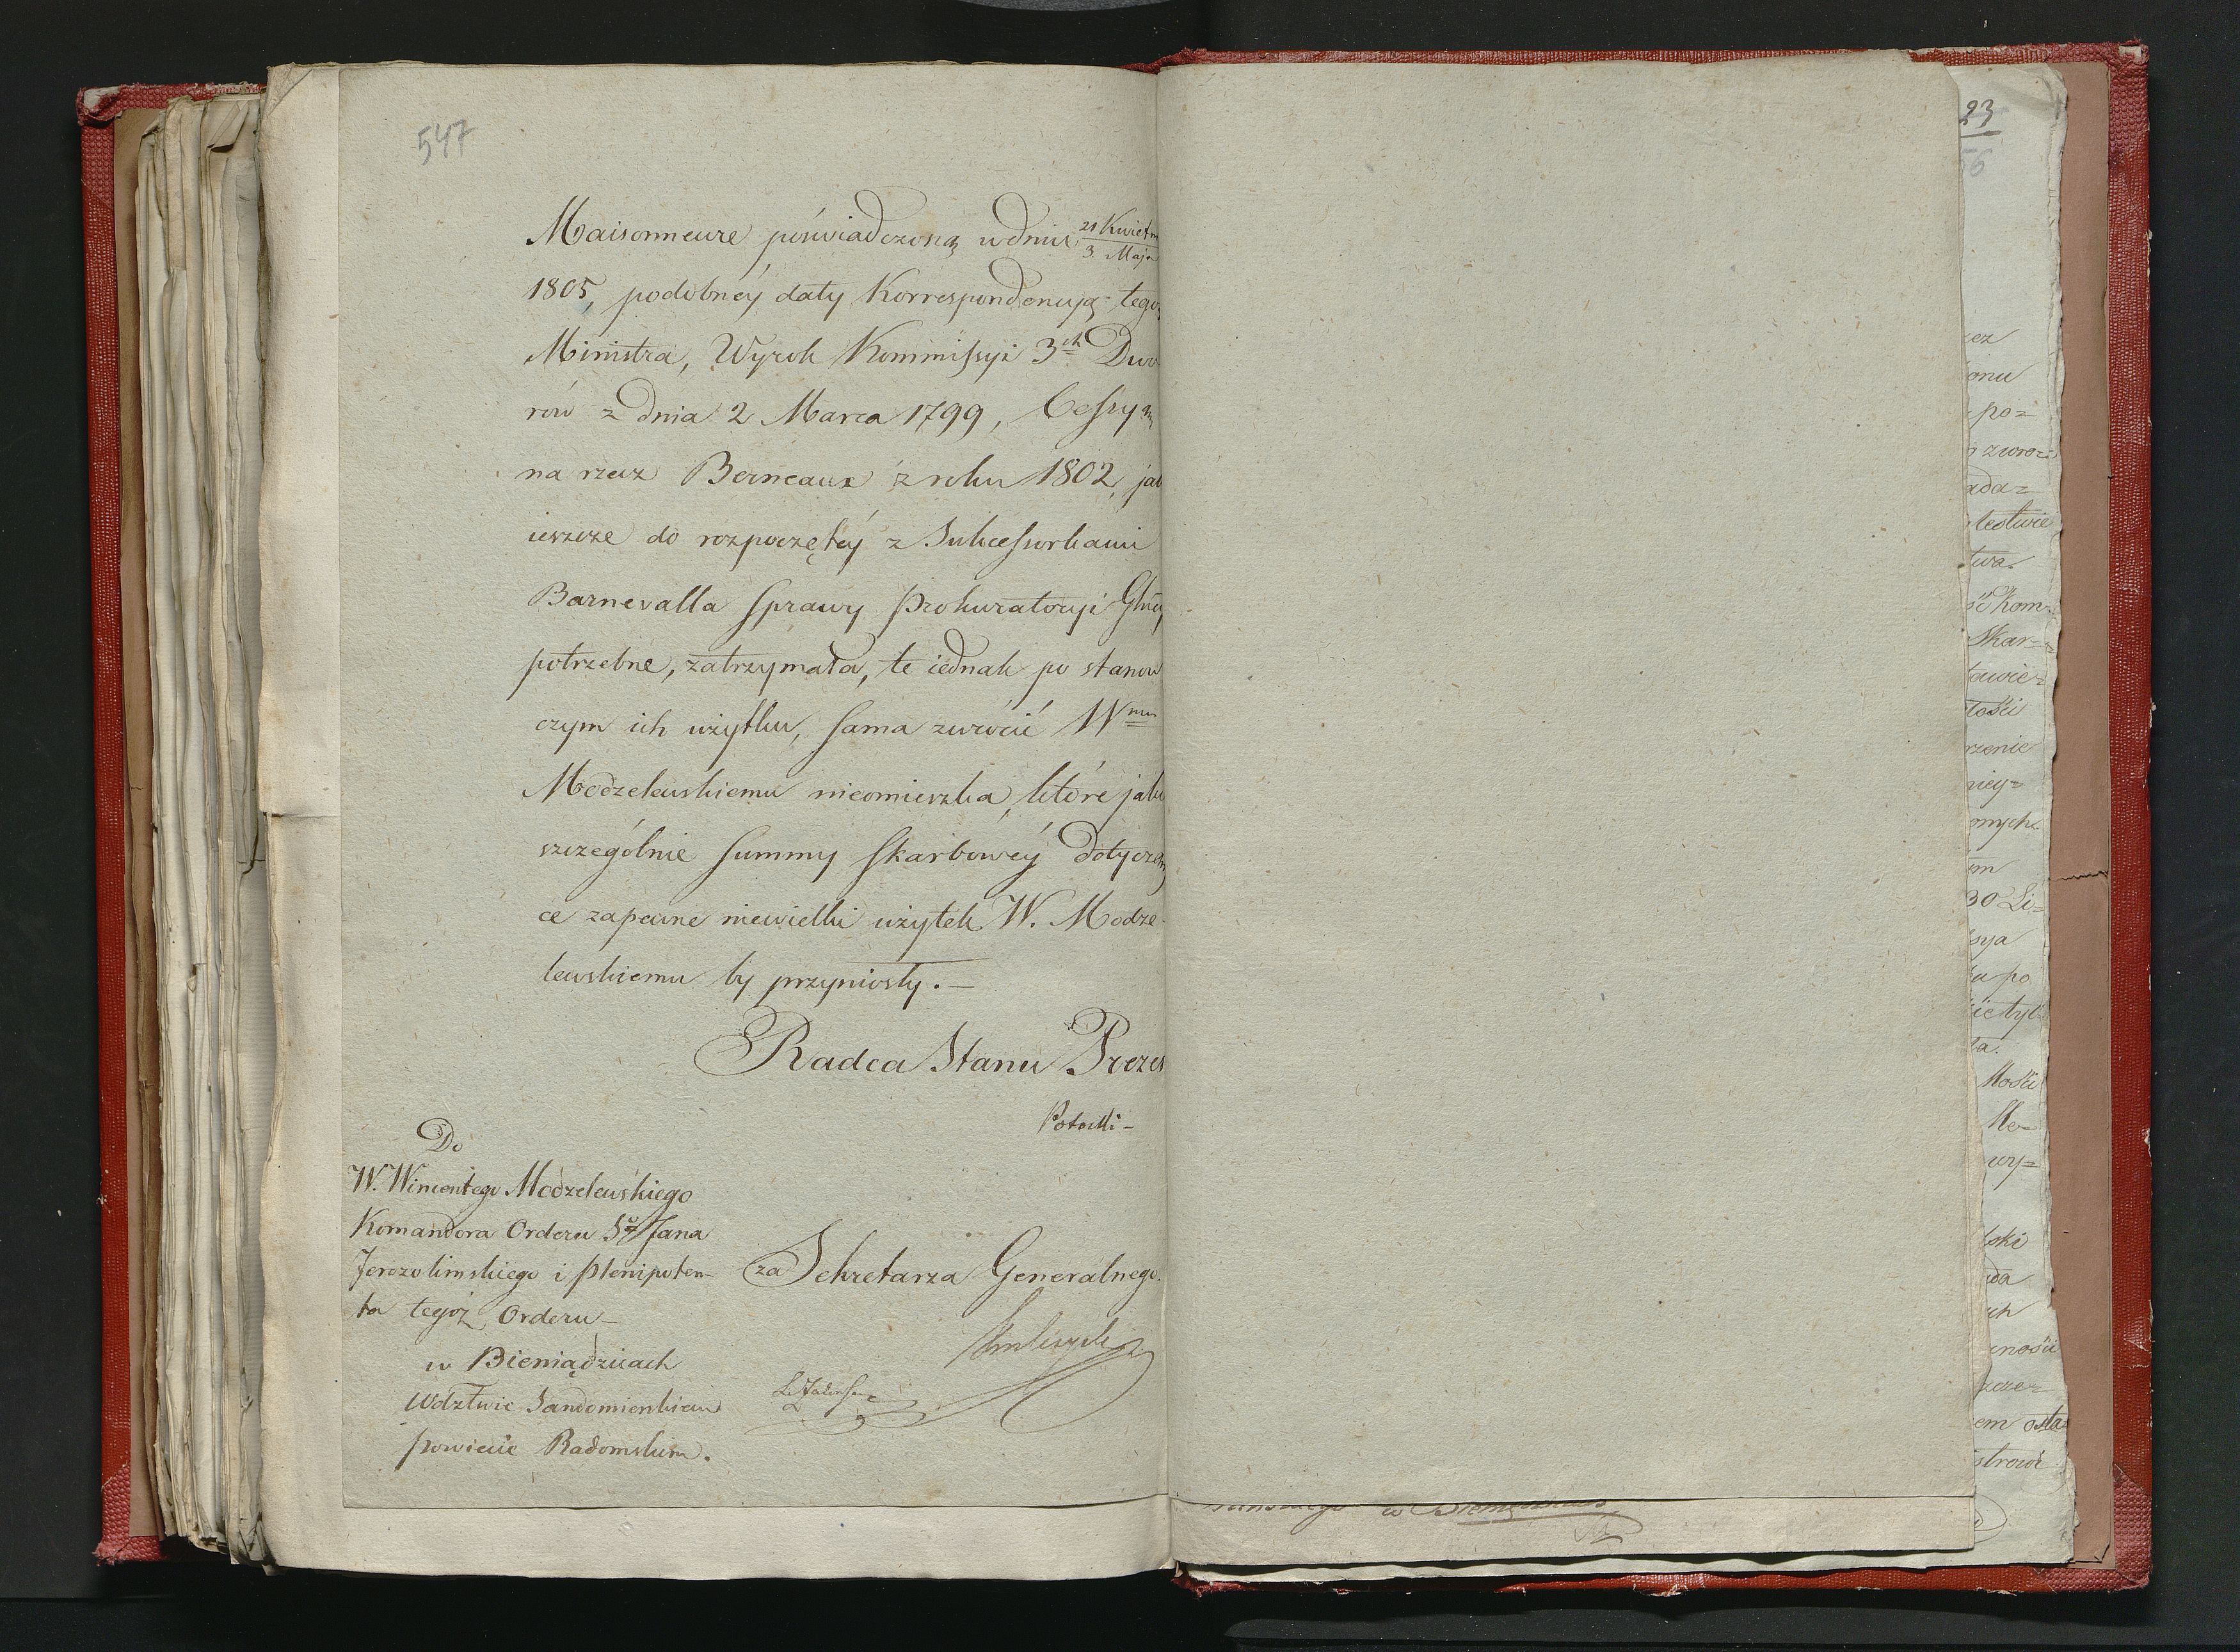 547
Maisonneure poświadczoną w dniu 21 Kwietn
3. Maja
1805, podobnéy daty Korrespondencyą tegoż
Ministra, Wyrok Kommissyi 3ch Dwo
rów z dnia 2 Marca 1799, Cessyą
na rzecz Berneaux z roku 1802, jak
ieszcze do rozpoczętéy z Sukcessorkami
Barnevalla sprawy Prokuratoryi Głnéy
potrzebne, zatrzymała, te iednak po stanow
czym ich użytku, sama zwrócić Wmu
Modzelewskiemu nieomieszka, które jako
szczególnie summy skarbowéy dotyczą
ce zapewne niewielki użytek W. Modze-
lewskiemu by przyniosły. —
Radca Stanu Prezes
Potocki -
Do
W. Wincentego Modzelewskiego
Komandora Orderu Sgo Jana
Jerozolimskiego i Plenipoten-
ta tegoż Orderu -
w Bieniądzicach
Wdztwie Sandomierskiem
powiecie Radomskim.
za Sekretarza Generalnego.
23
56
ez
onu
po=
zwro=
ada=
testwie
twa.
Kom
Skar=
tawie=
tości
rzenie
niey=
onych
m
30 Li=
sya
u po
ie tyl
ta.
Mości
Me-
wy=
ski
da
ch
cności
szcze=
em osta
strowi